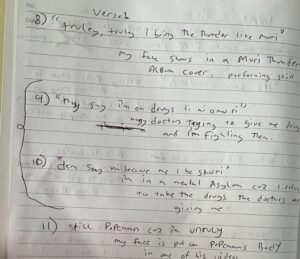 Verses
8) "truley, truley I bring the thunder like muri"
my face shows in a Muri Thunder
Album cover, performing still
9) "They say i'm on drugs
my doctors trying to give me drug
and I'm fighting Them.
10) "dem say me because me I be
in in a mental Asylum cuz I
to take the drugs the doctors are
giving me.
11) still PopCaan cuz im unruly
my face is put on PopCaans Body
in one of his video